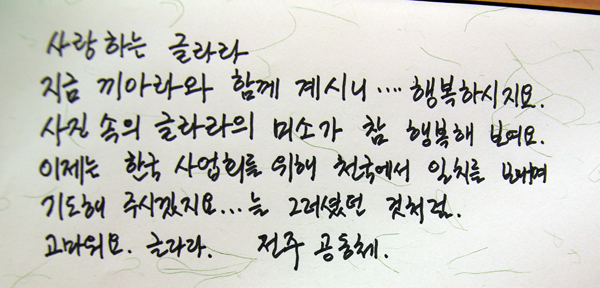 사랑하는 글라라
지금 끼아라와 함께 계시니.... 행복하시지요.
사진 속의 글라라의 미소가 참 행복해 보여요.
이제는 한국 사업회를 위해 천국에서 일치를 보내며
기도해 주시겠지요... 늘 그러셨던 것처럼.
고마워요. 글라라. 전주 공동체.